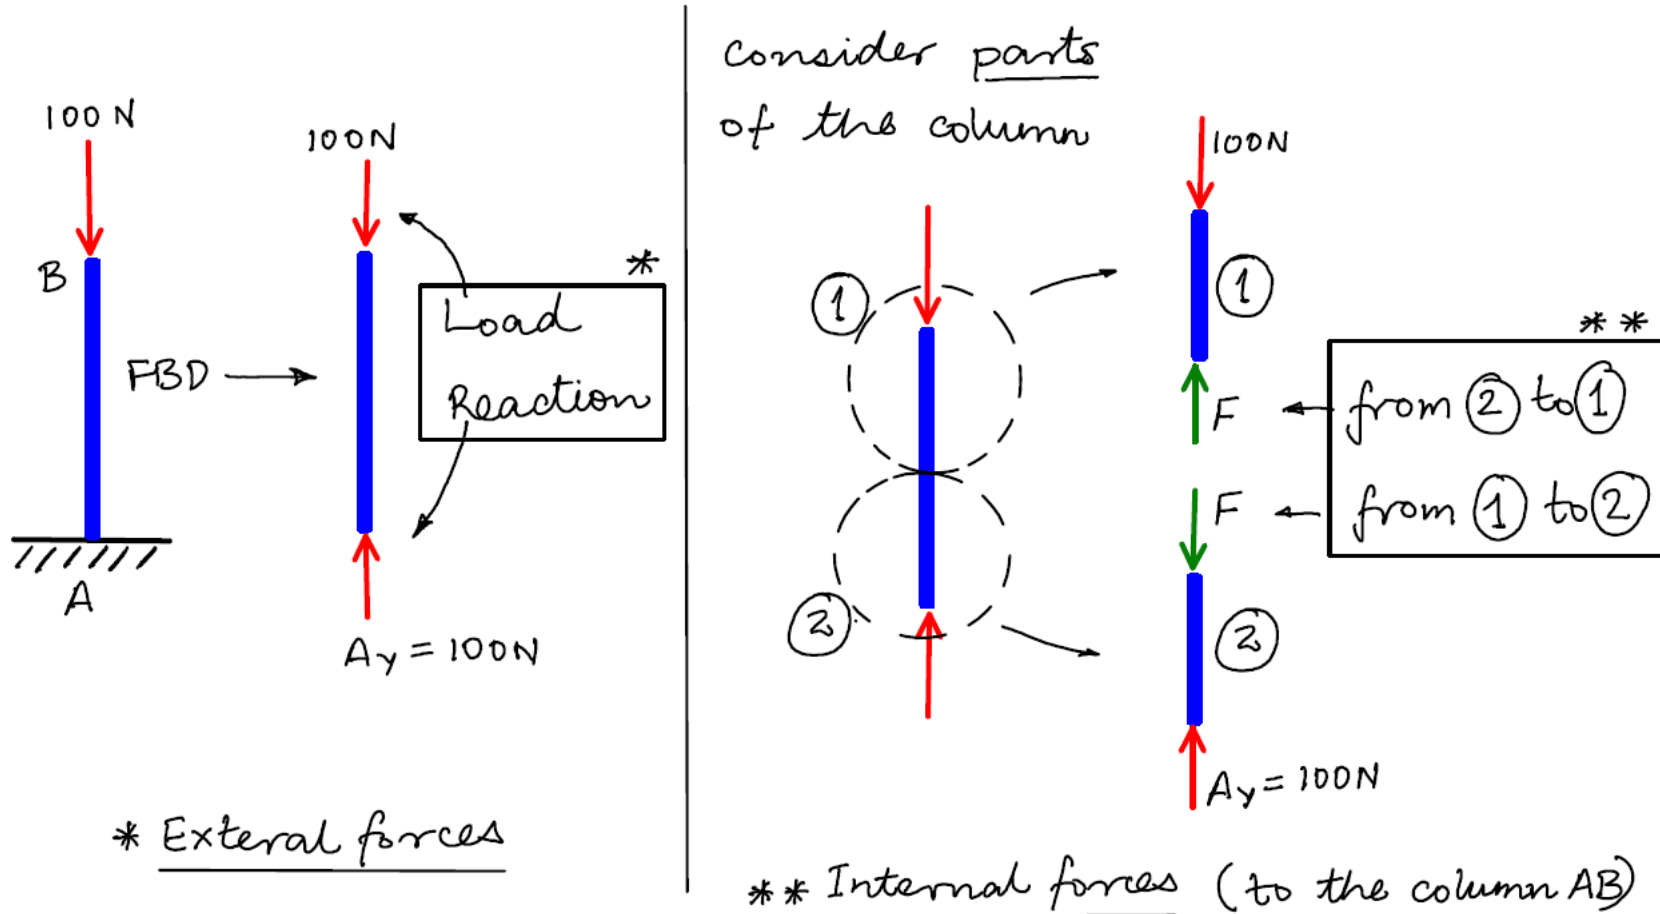 100 N
B
FBD
A
100N
*
Load
Reaction
Ay = 100N
* Exteral forces
Consider parts
of the column
1
2
100N
1
F
F
2
Ay = 100N
* *
from 2 to 1
from 1 to 2
** Internal forces (to the column AB)